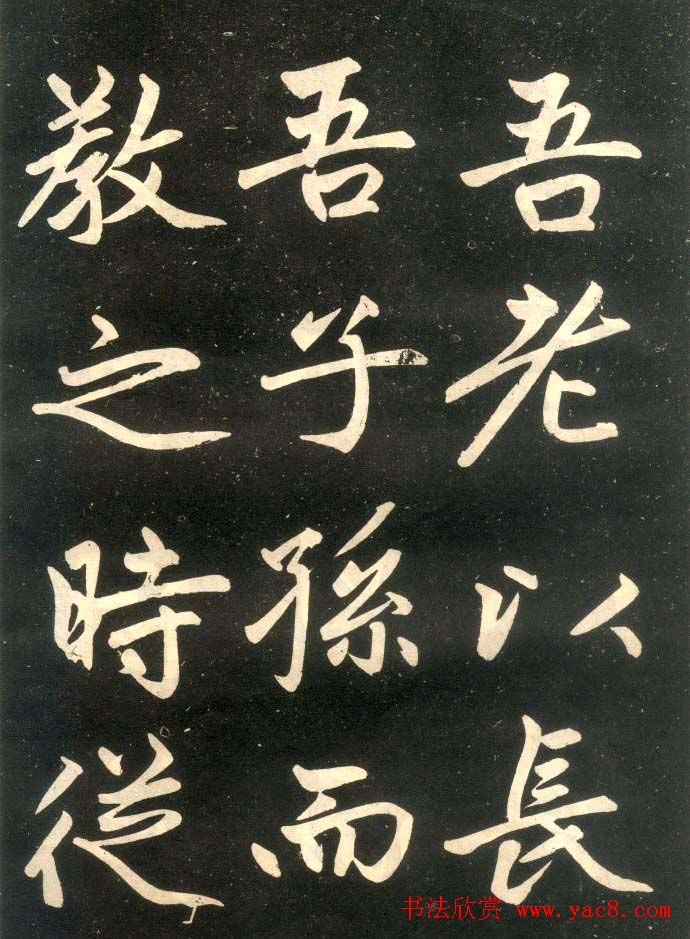 吾老以長
吾子孫而
教之時從
书法欣赏 www.yac8.com